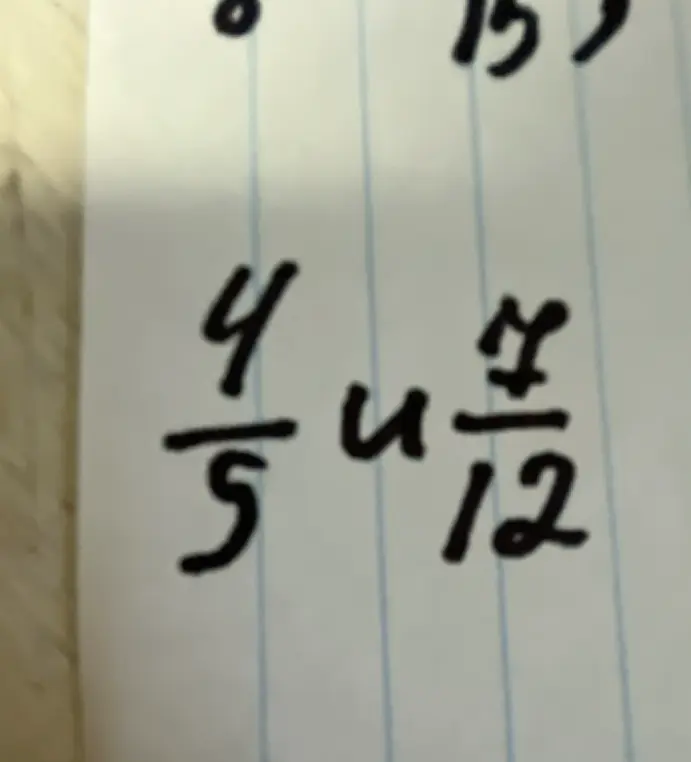 15)
4/5 и 7/12